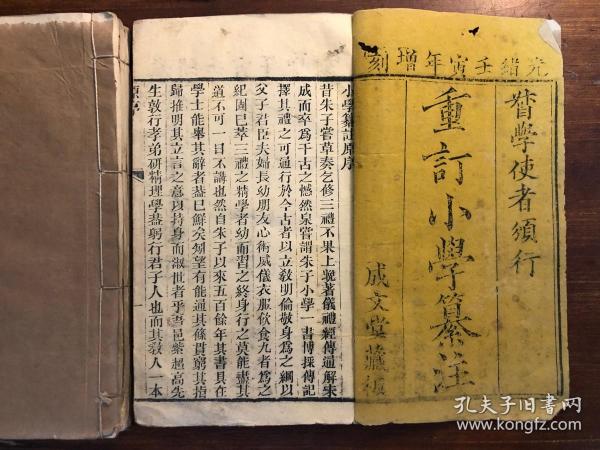 光緒壬寅年增刻
督學使者頒行
重訂小學纂注
成文堂藏板
小學纂註原序
昔朱子嘗草奏乞修三禮不果上晚著儀禮經傳通解未
成而卒為千古之憾然泉嘗謂朱子小學一書博採傳記
擇其禮之可通行於今古者以立敎明倫敬身為之綱以
父子君臣夫婦長幼朋友心術威儀衣服飲食九者為之
紀固已萃三禮之精學者幼而習之終身行之莫能盡其
道不可一日不講也然自朱子以來五百餘年其書具在
學士能舉其辭者葢已鮮矣矧望有能通其條貫窮其指
歸推明其立言之意以持身而淑世者乎吾邑紫超高先
生敦行孝弟研精理學葢躬行君子人也而其敎人一本
原序
一
孔夫子旧书网
www.kongfz.com